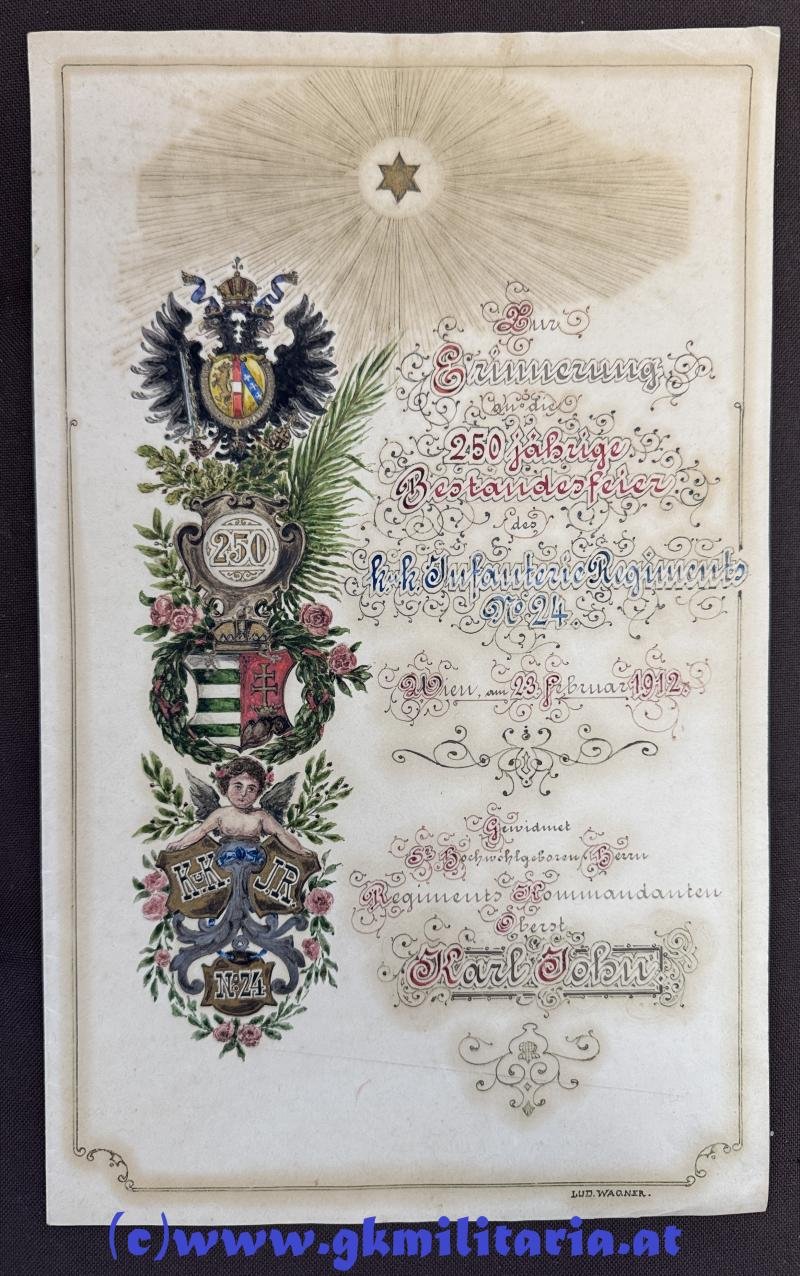 Zur
Erinnerung
an die
250 jährige
Bestandesfeier
des
k.u.k. Infanterie Regiments
No 24.
Wien, am 23. Februar 1912.
Gewidmet
Sr Hochwohlgeboren Herrn
Regiments Kommandanten
Oberst
Karl John.
250
K.u.K. J.R.
No. 24
LUD. WAGNER.
(c)www.gkmilitaria.at